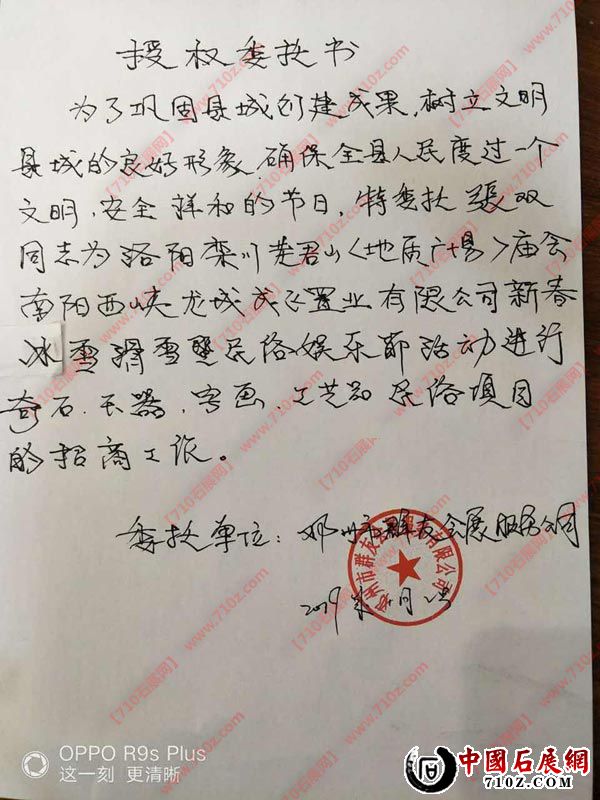 授权委托书
为了巩固县城创建成果,树立文明
县城的良好形象,确保全县人民度过一个
文明、安全祥和的节日,特委托張双
同志为洛阳栾川老君山<地质广场>庙会
南阳西峡龙城 置业有限公司新春
冰雪滑雪暨民俗娱乐節活动进行
奇石、玉器、字画、工艺品 民俗项目
的招商工作。
委托单位:邓州市群友会展服务公司
邓州市群友会展服务有限公司
2019年 月
【710石展网】
www.710z.com
OPPO R9s Plus
这一刻 更清晰
中國石展網
710Z.COM